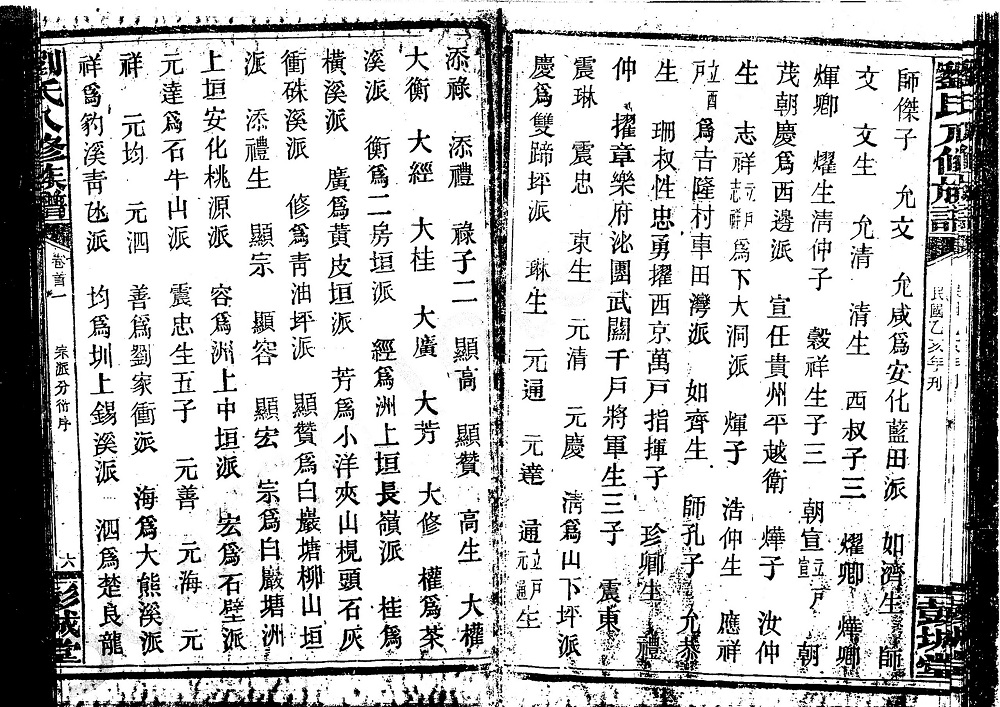 劉氏八修族譜
民國乙亥年刊
彭城堂
師傑子 允文 允咸爲安化藍田派 如濟生 師
文 文生 允清 清生 西叔子三 燿卿 燁卿
煇卿 燿生清仲子 穀祥生子三 朝宣立戶宣 朝
茂朝慶爲西邊派 宣任貴州平越衛 燁子 汝仲
生 志祥立戶志祥爲下大洞派 煇子 浩仲生 應祥
立戶酉爲吉隆村車田灣派 如齊生 師孔子 允恭
生 珊叔性忠勇擢西京萬戶指揮子 珍卿生 禮
仲 擢章樂府沘團武關千戶將軍生三子 震東
震琳 震忠 東生 元清 元慶 清爲山下坪派
慶爲雙蹄坪派 琳生 元通 元達 通立戶元通生
添祿 添禮 祿子二 顯高 顯贊 高生 大權
大衡 大經 大桂 大廣 大芳 大修 權爲茶
溪派 衡爲二房垣派 經爲洲上垣長嶺派 桂爲
橫溪派 廣爲黄皮垣派 芳爲小洋夾山梘頭石灰
衝硃溪派 修爲青油坪派 顯贊爲白巖塘柳山垣
派 添禮生 顯宗 顯容 顯宏 宗爲白巖塘洲
上垣安化桃源派 容爲洲上中垣派 宏爲石壁派
元達爲石牛山派 震忠生五子 元善 元海 元
祥 元均 元泗 善爲劉家衝派 海爲大熊溪派
祥爲豹溪青氹派 均爲圳上錫溪派 泗爲楚良龍
劉氏八修族譜
卷首一
宗派分衍序
六
彭城堂